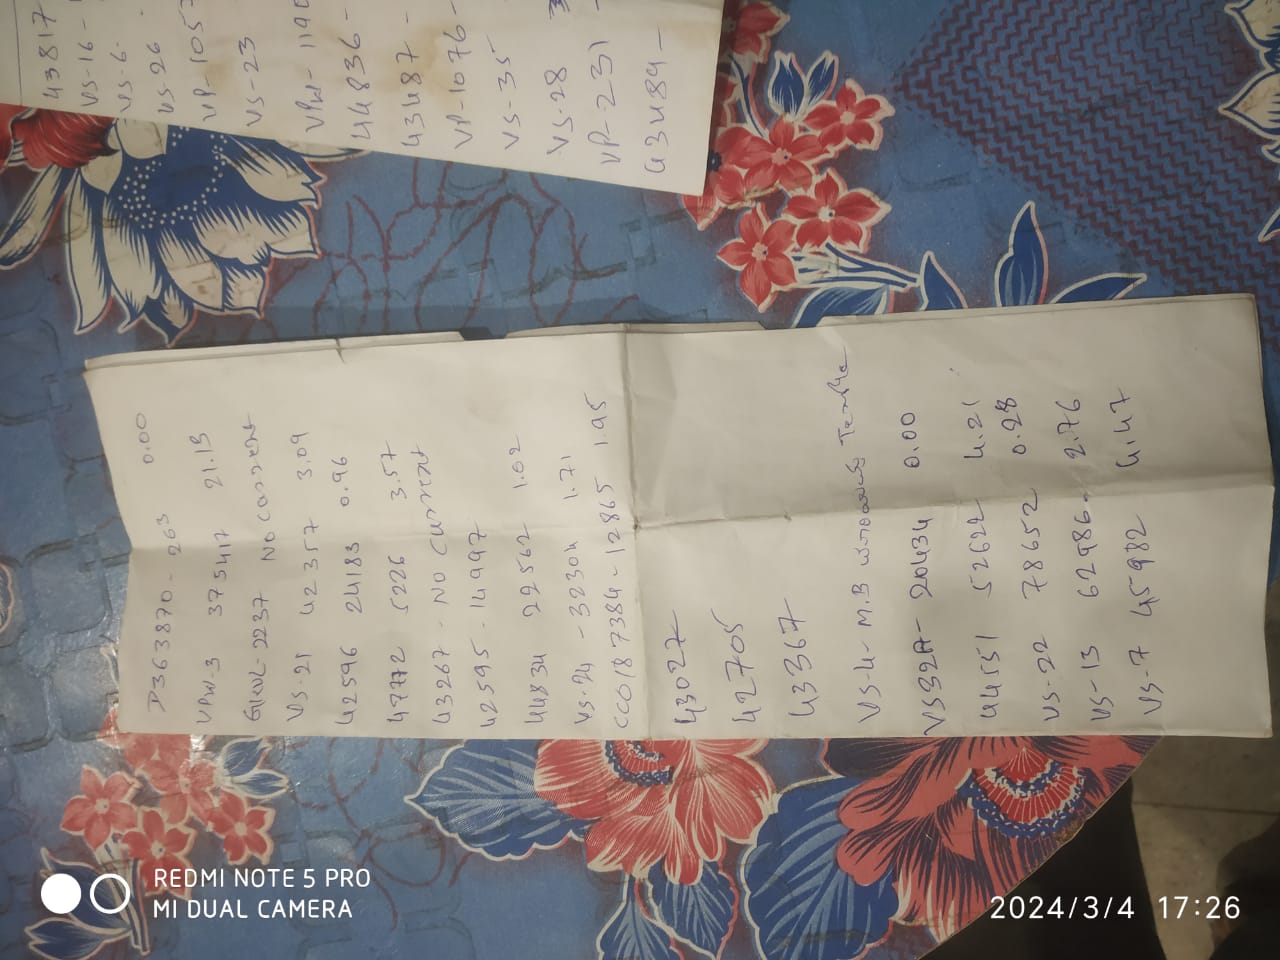 43817
VS-16-
VS-6.
VS-26
VP-105
VS-23
VPW-1190
44836-
43487-
VP-1076-
VS-35
VS-28 3
VP-231-
43484-
D363870-263 0.00
VPW-3 375417 21.13
2237 No Current
VS-21 42357 3.09
42596 24183 0.96
47772 5226 3.57
43267 - No Current
42595-14997
44834 22562 1.02
VS-24 - 32304 1.71
CC0187384-12865 1.95
43027
42705
43367
VS-4- M.B
VS32A- 20434 0.00
44151 52622 4.21
VS-22 78652 0.28
VS-13 62986 2.76
VS-7 45982 4.47
REDMI NOTE 5 PRO
MI DUAL CAMERA
2024/3/4 17:26